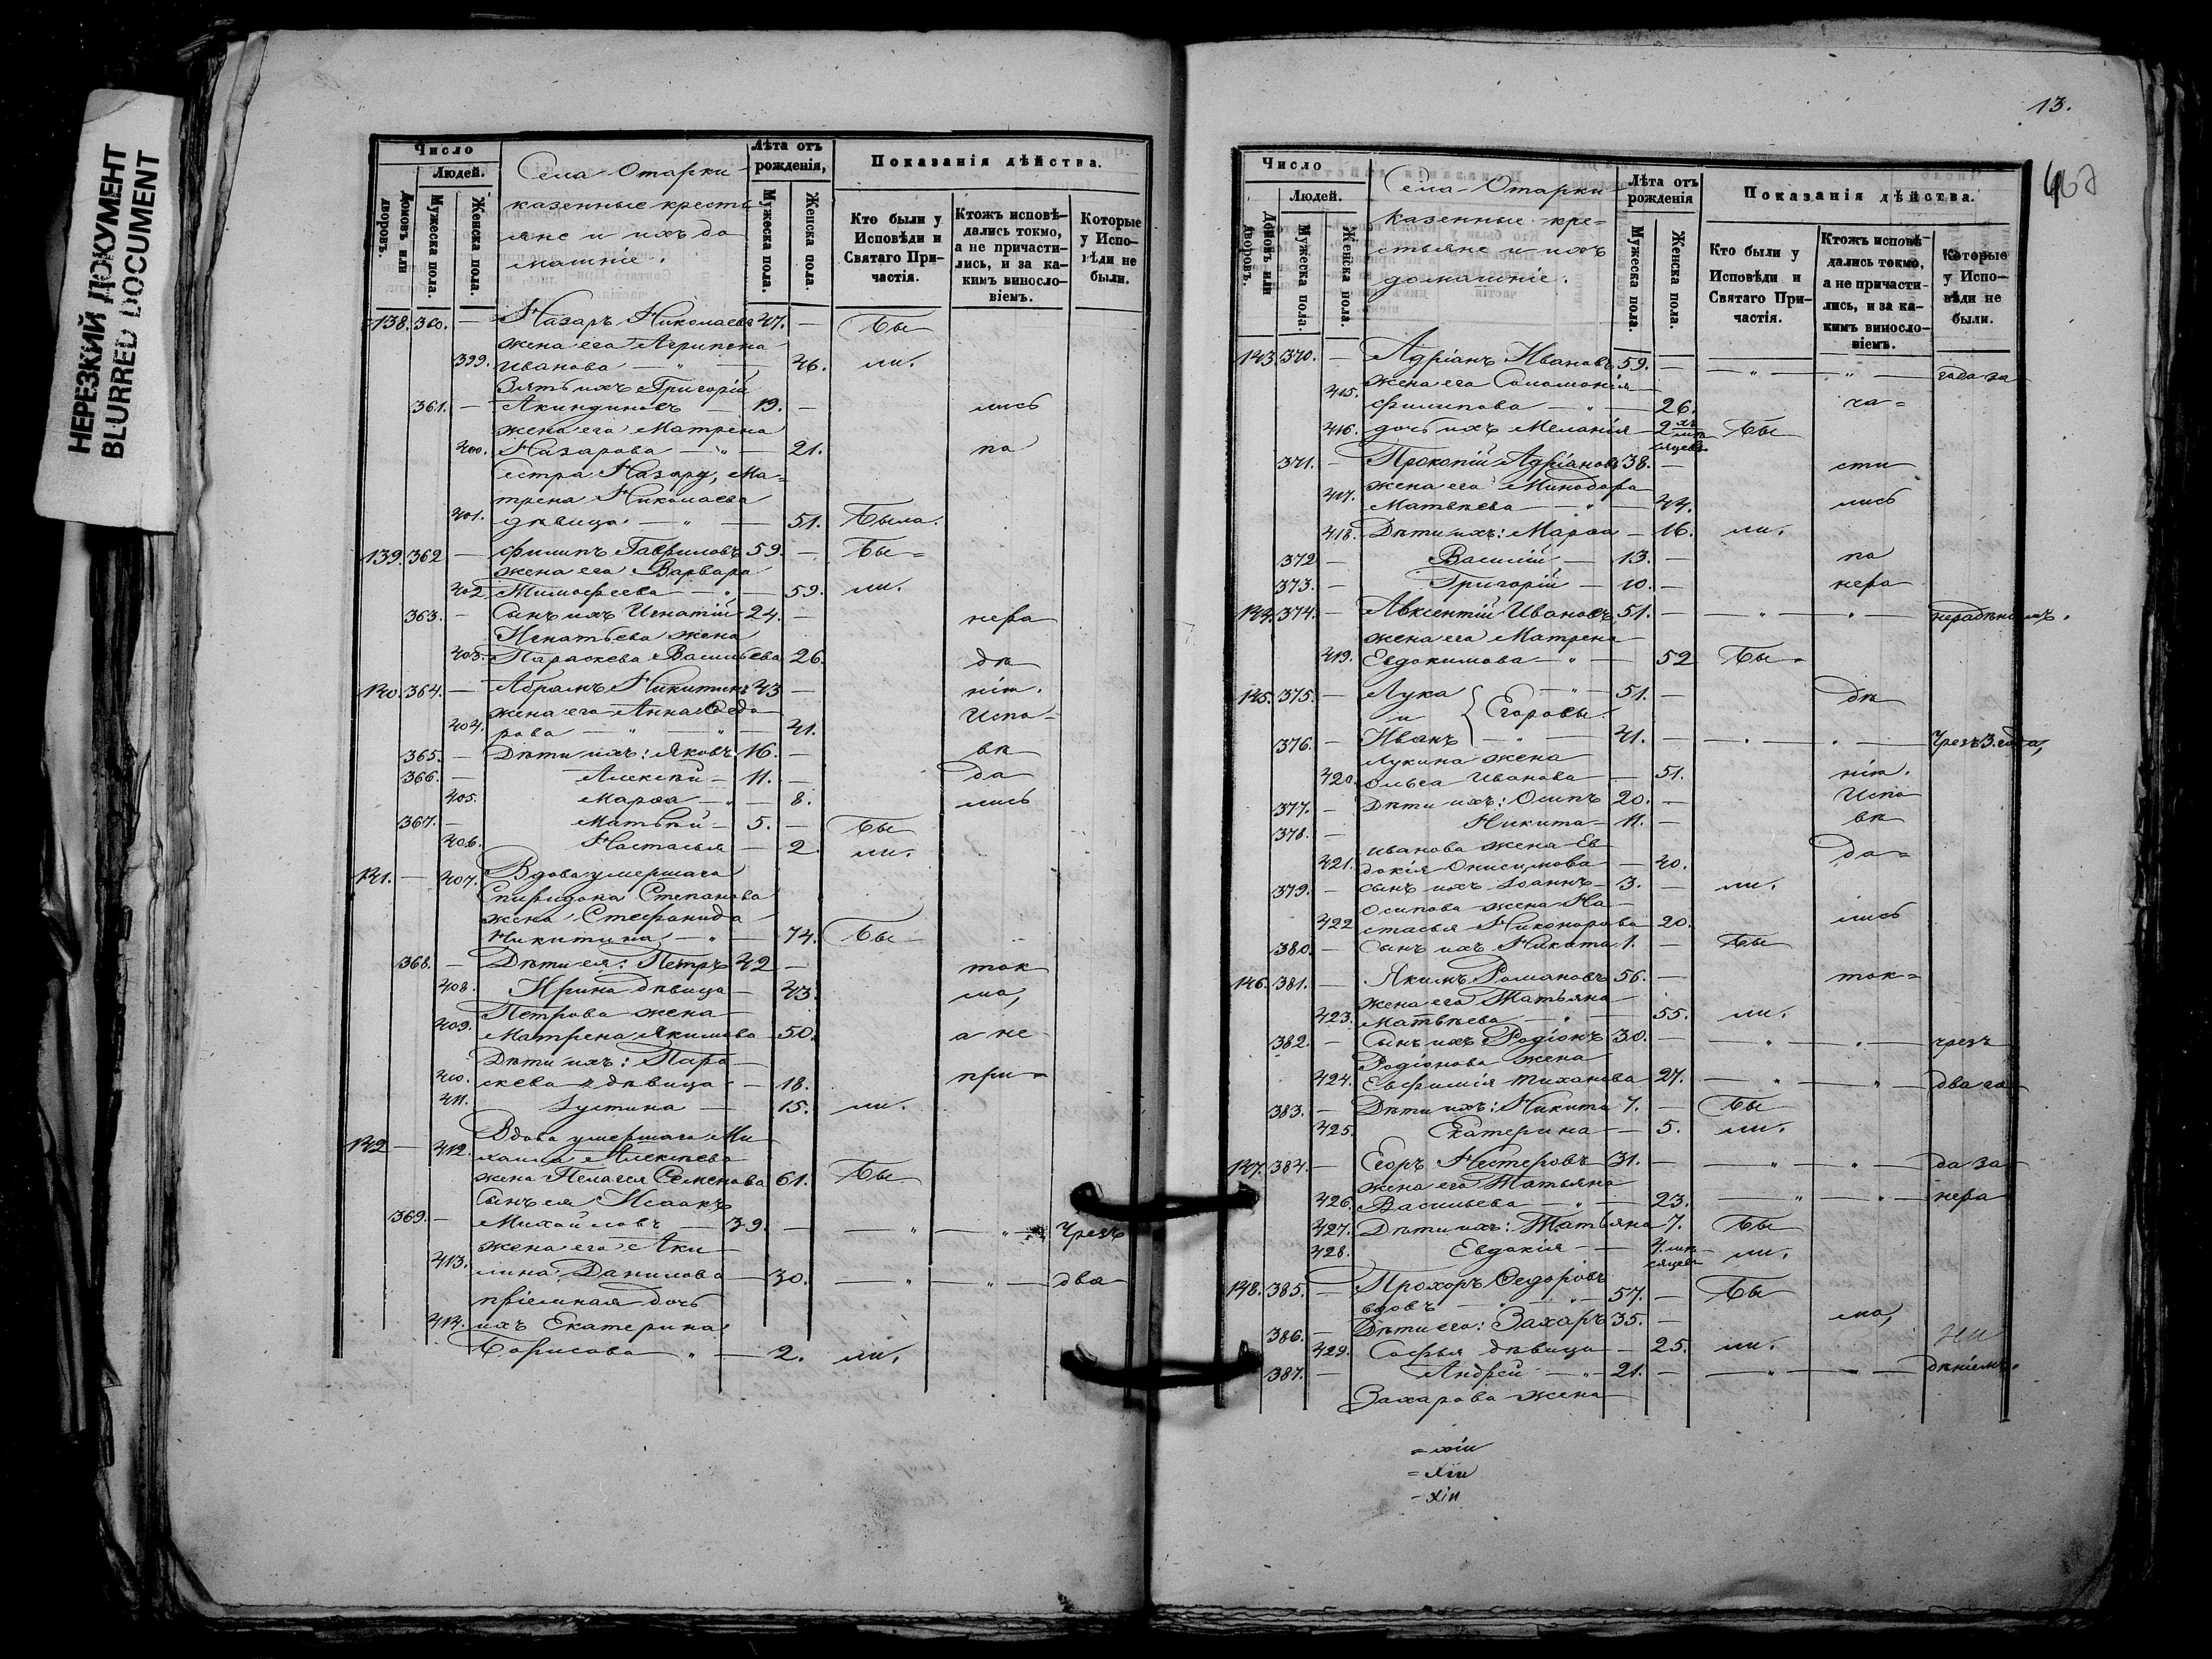 НЕРЕЗКИЙ ДОКУМЕНТ
BLURRED DOCUMENT
Число
Людей.
Домовъ или дворовъ.
Мужеска пола.
Женска пола.
Села Отарки
казенные кресть
яне и ихъ до
машніе.
Лѣта отъ рожденія,
Мужеска пола.
Женска пола.
Показанія дѣйства.
Кто были у Исповѣди и Святаго Причастія.
Ктожъ исповѣдались токмо, а не причастились, и за какимъ винословіемъ.
Которые у Исповѣди не были.
138. 360. — Назаръ Николаевъ 47. — Бы
жена его Агрипена
399. Иванова — " — 46. ли.
Зять ихъ Григорій
361. — Акиндиновъ — 19. — лись
жена его Матрена
400. Назарова — " — 21. по
сестра Назару, Ма-
трена Николаева
401. дѣвица — " — 51. Была.
139. 362 — Филипъ Гавриловъ 59. — Бы-
жена его Варвара
402 Тимофеева — " — 59. ли.
363. — Сынъ ихъ Игнатій 24. — нера
Игнатьева жена
403. Параскева Васильева 26. дѣ
140. 364. — Абрамъ Никитинъ 43 — нію.
жена его Анна Ѳедо
404. рова — " — " — 41. Испо-
365. — Дѣти ихъ: Яковъ 16. — вѣ
366. — Алексѣй — 11. — да
405. Марѳа — " — 8. лись
367. — Матвѣй — 5. — Бы
406. Настасья — 2 ли.
141. — 407. Вдова умершаго
Спиридона Степанова
жена Стефанида
Никитина — " — 74. Бы —
368. — Дѣти ея: Петръ 42 — ток
408. Ирина дѣвица — 43. мо,
Петрова жена
409. Матрена Якимова 50. а не
Дѣти ихъ: Пара
410. скева дѣвица — 18. при-
411. Іустина — 15. ли.
142 — 412. Вдова умершаго Ми
хаила Алексѣева
жена Пелагея Семенова 61. Бы
Сынъ ея Исаакъ
369. — Михайловъ — 39. — — " — " — Чрезъ
жена его Аки
413. лина Данилова — 30. — " — " — два
пріемная дочь
414. ихъ Екатерина
Борисова " — 2. ли.
13.
Число
Людей.
Домовъ или дворовъ.
Мужеска пола.
Женска пола.
Села Отарки
казенные кре-
стьяне и ихъ
домашніе.
Лѣта отъ рожденія
Мужеска пола.
Женска пола.
Показанія дѣйства.
Кто были у Исповѣди и Святаго Причастія.
Ктожъ исповѣдались токмо, а не причастились, и за какимъ винословіемъ.
Которые у Исповѣди не были.
143. 370. — Адріанъ Ивановъ 59. — — " — " — года за
жена его Соломонія
415. Филипова — " — 26. ча-
416. дочь ихъ Меланія 2хъ мѣсяцевъ Бы
371. — Прокопій Адріановъ 38. — сти
жена его Минодора
417. Матвѣева — " — 44. лись
418. Дѣти ихъ: Марѳа — 16. ли.
372 — Василій — 13. — по
373. — Григорій — 10. — нера
144. 374. — Авксентій Ивановъ 51. — — " — " — нерадѣніемъ.
жена его Матрена
419. Евдокимова — " — 52 Бы-
145. 375. — Лука — " — 51. — дѣ
и Егоровы.
376. — Иванъ — " — 41. — — " — " — Чрезъ 3. года,
Лукина жена
420. Ольга Иванова — 51. нію.
377. — Дѣти ихъ: Осипъ 20. — Испо
378. — Никита — 11. — вѣ
Иванова жена Ев
421. докія Онисимова — 40. да-
379. — сынъ ихъ Іоаннъ — 3. — ли.
Осипова жена На
422 стасья Никонорова 20. лись
380. Сынъ ихъ Никита 1. — Бы
146. 381. — Якимъ Романовъ 56. — ток-
жена его Татьяна
423. Матвѣева — " — 55. ли.
382. — Сынъ ихъ Родіонъ 30. — — " — " — чрезъ
Родіонова жена
424. Евфимія Тиханова 27. — " — " — два го
383. — Дѣти ихъ: Никита 7. — Бы
425. Екатерина — 5. ли.
147. 384. — Егоръ Нестеровъ 31. — — " — " — да за
жена его Татьяна
426. Васильева — " — 23. — " — " — нера
427. Дѣти ихъ: Татьяна 7. Бы
428. Евдокія — 4. мѣсяцевъ ли.
148. 385. — Прохоръ Ѳедоровъ
вдовъ — " — " — 57. — Бы
386. — Дѣти его: Захаръ 35. — мо,
429. Софья дѣвица — 25. ли.
387. — Андрей — " — 21. — — " — " — дѣніемъ.
Захарова жена